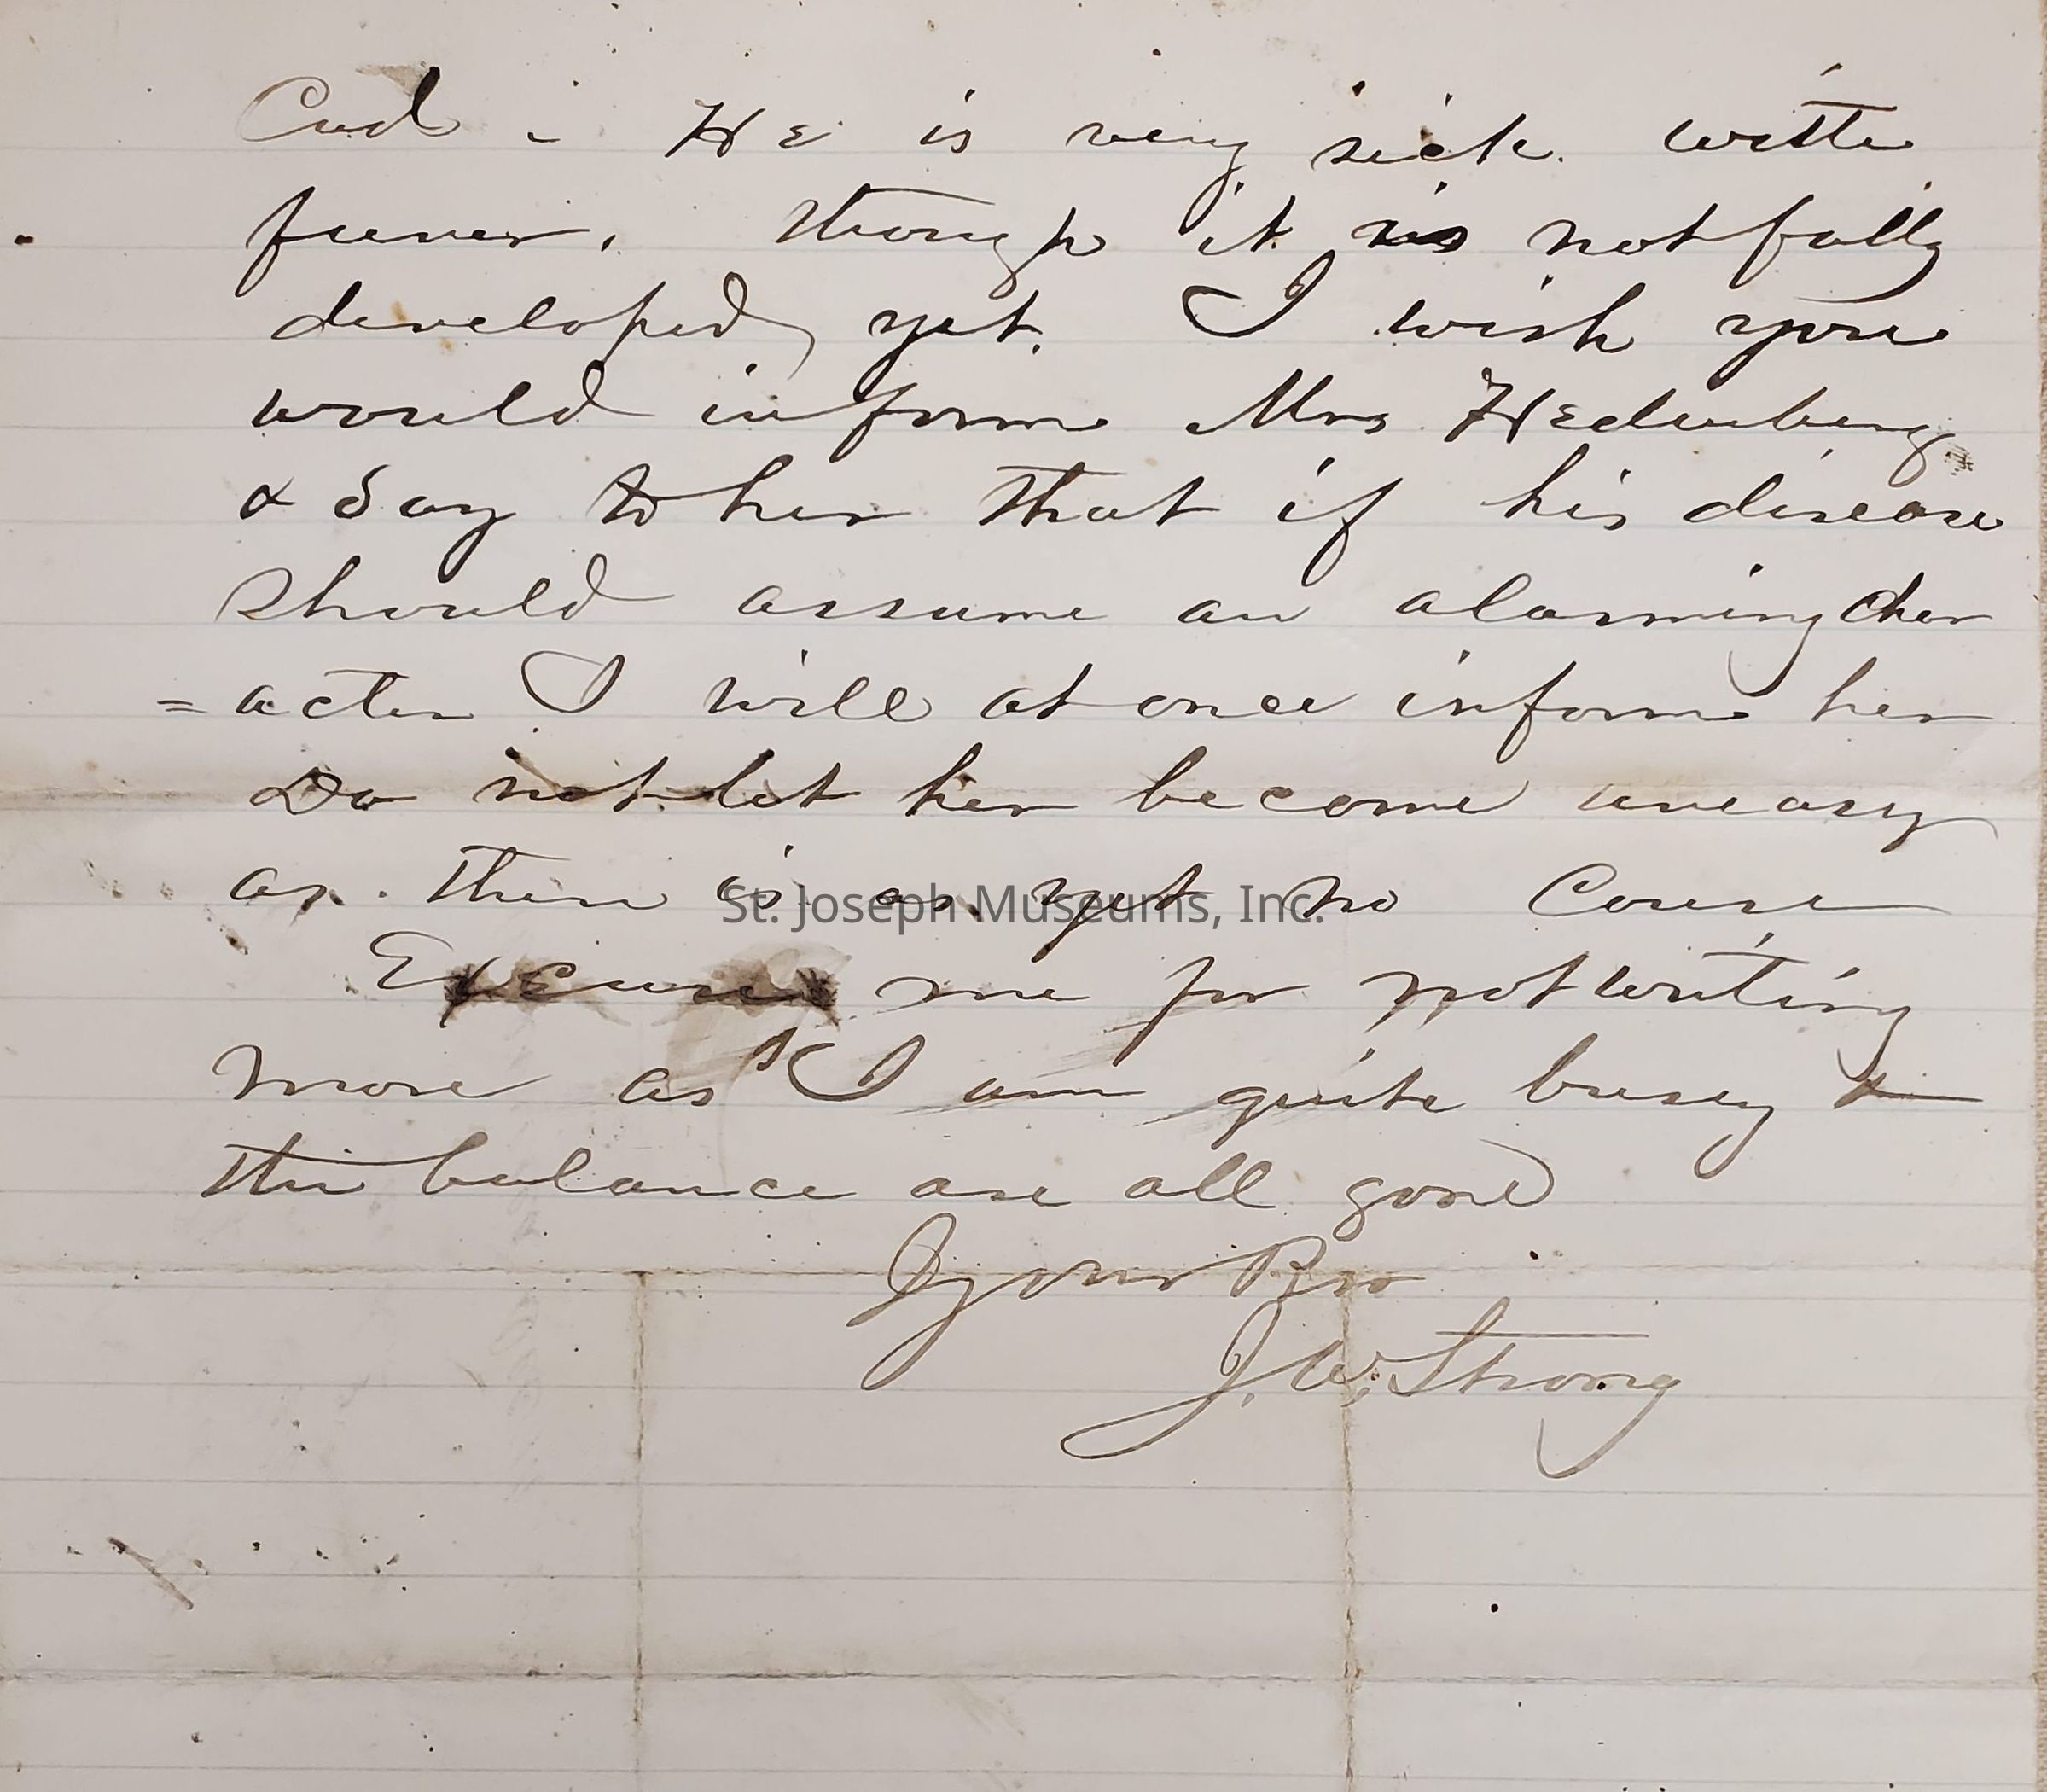 He is very sick with
fever, though it is not fully
developed yet. I wish you
would inform Mrs Hedenberg
& Say to her that if his disease
Should assume an alarming char
=acter I will at once inform her
Do not let her become uneasy
as there is as yet no Cause
St. Joseph Museums, Inc.
Excuse me for not writing
more as I am quite busy &
the balance are all gone
your Bro
J. W. Strong